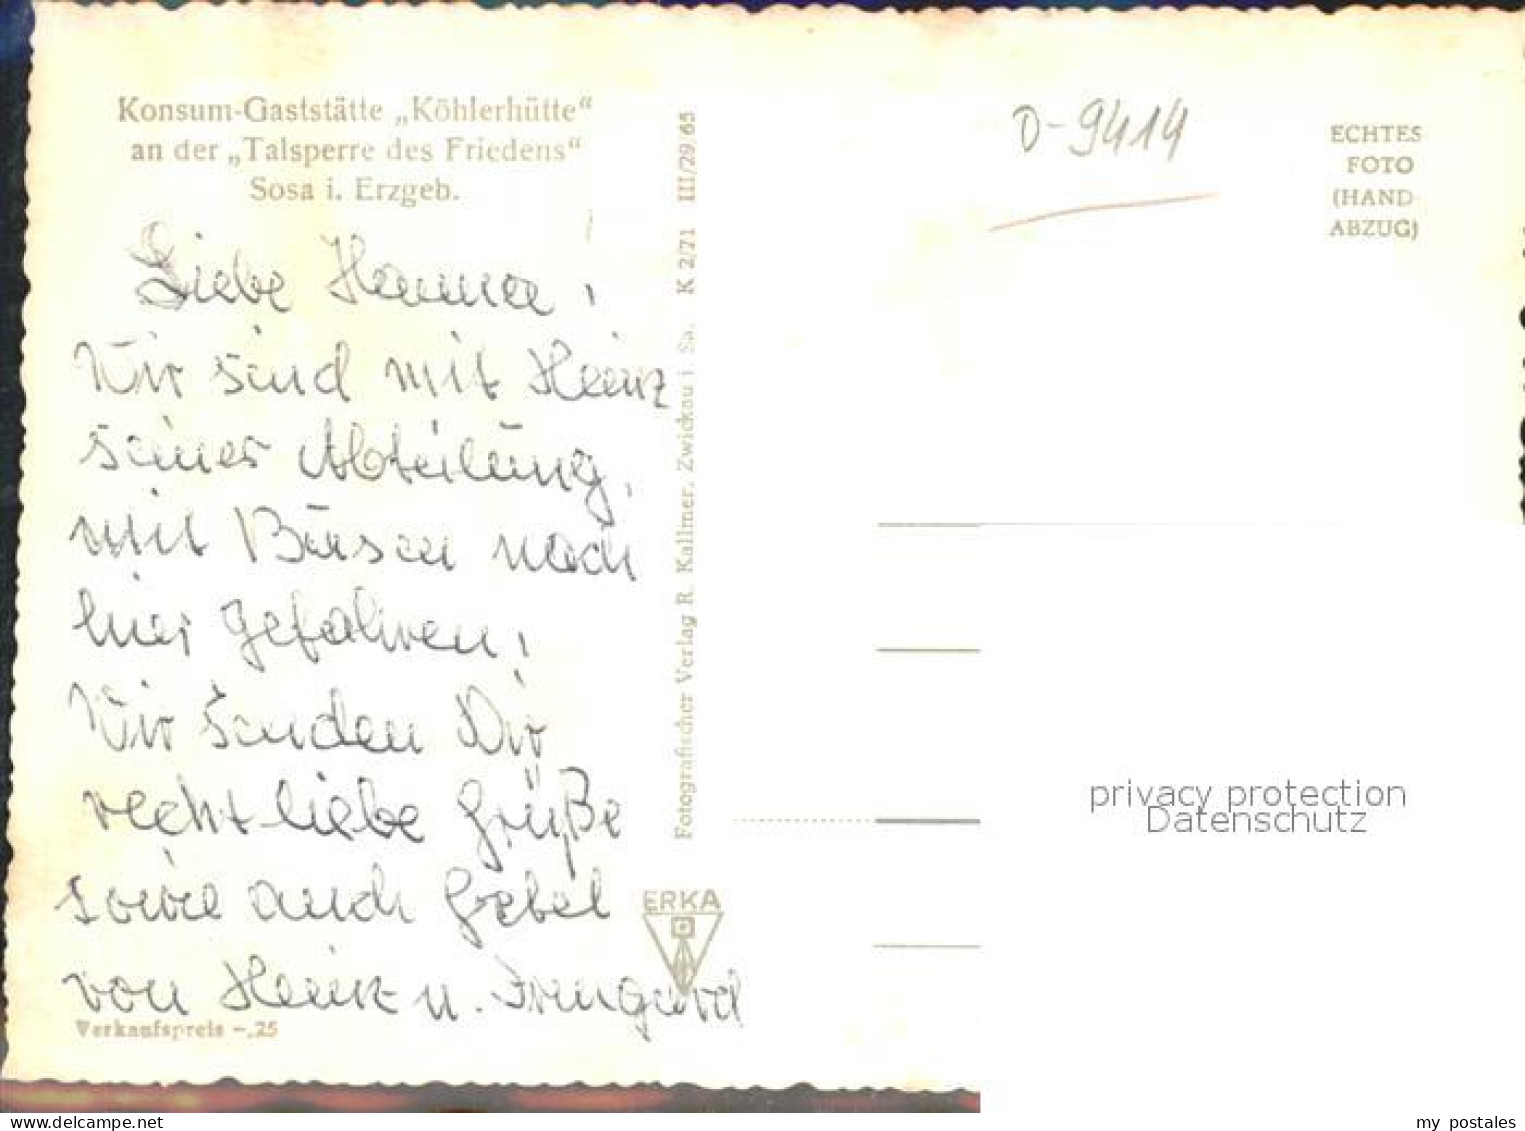 Konsum-Gaststätte „Köhlerhütte“
an der „Talsperre des Friedens“
Sosa i. Erzgeb.
Liebe Hanna!
Wir sind mit Heinz
seiner Abteilung,
mit Büsen nach
hier gefahren!
Wir senden Dir
recht liebe Grüße
sowie auch Gebel
von Heinz u. Irmgard
Verkaufspreis -.25
Fotografischer Verlag R. Kallmer, Zwickau i. Sa. K 2/71 III/29/65
ERKA
D-9414
ECHTES
FOTO
(HAND-
ABZUG)
privacy protection
Datenschutz
delcampe.net
my_postales